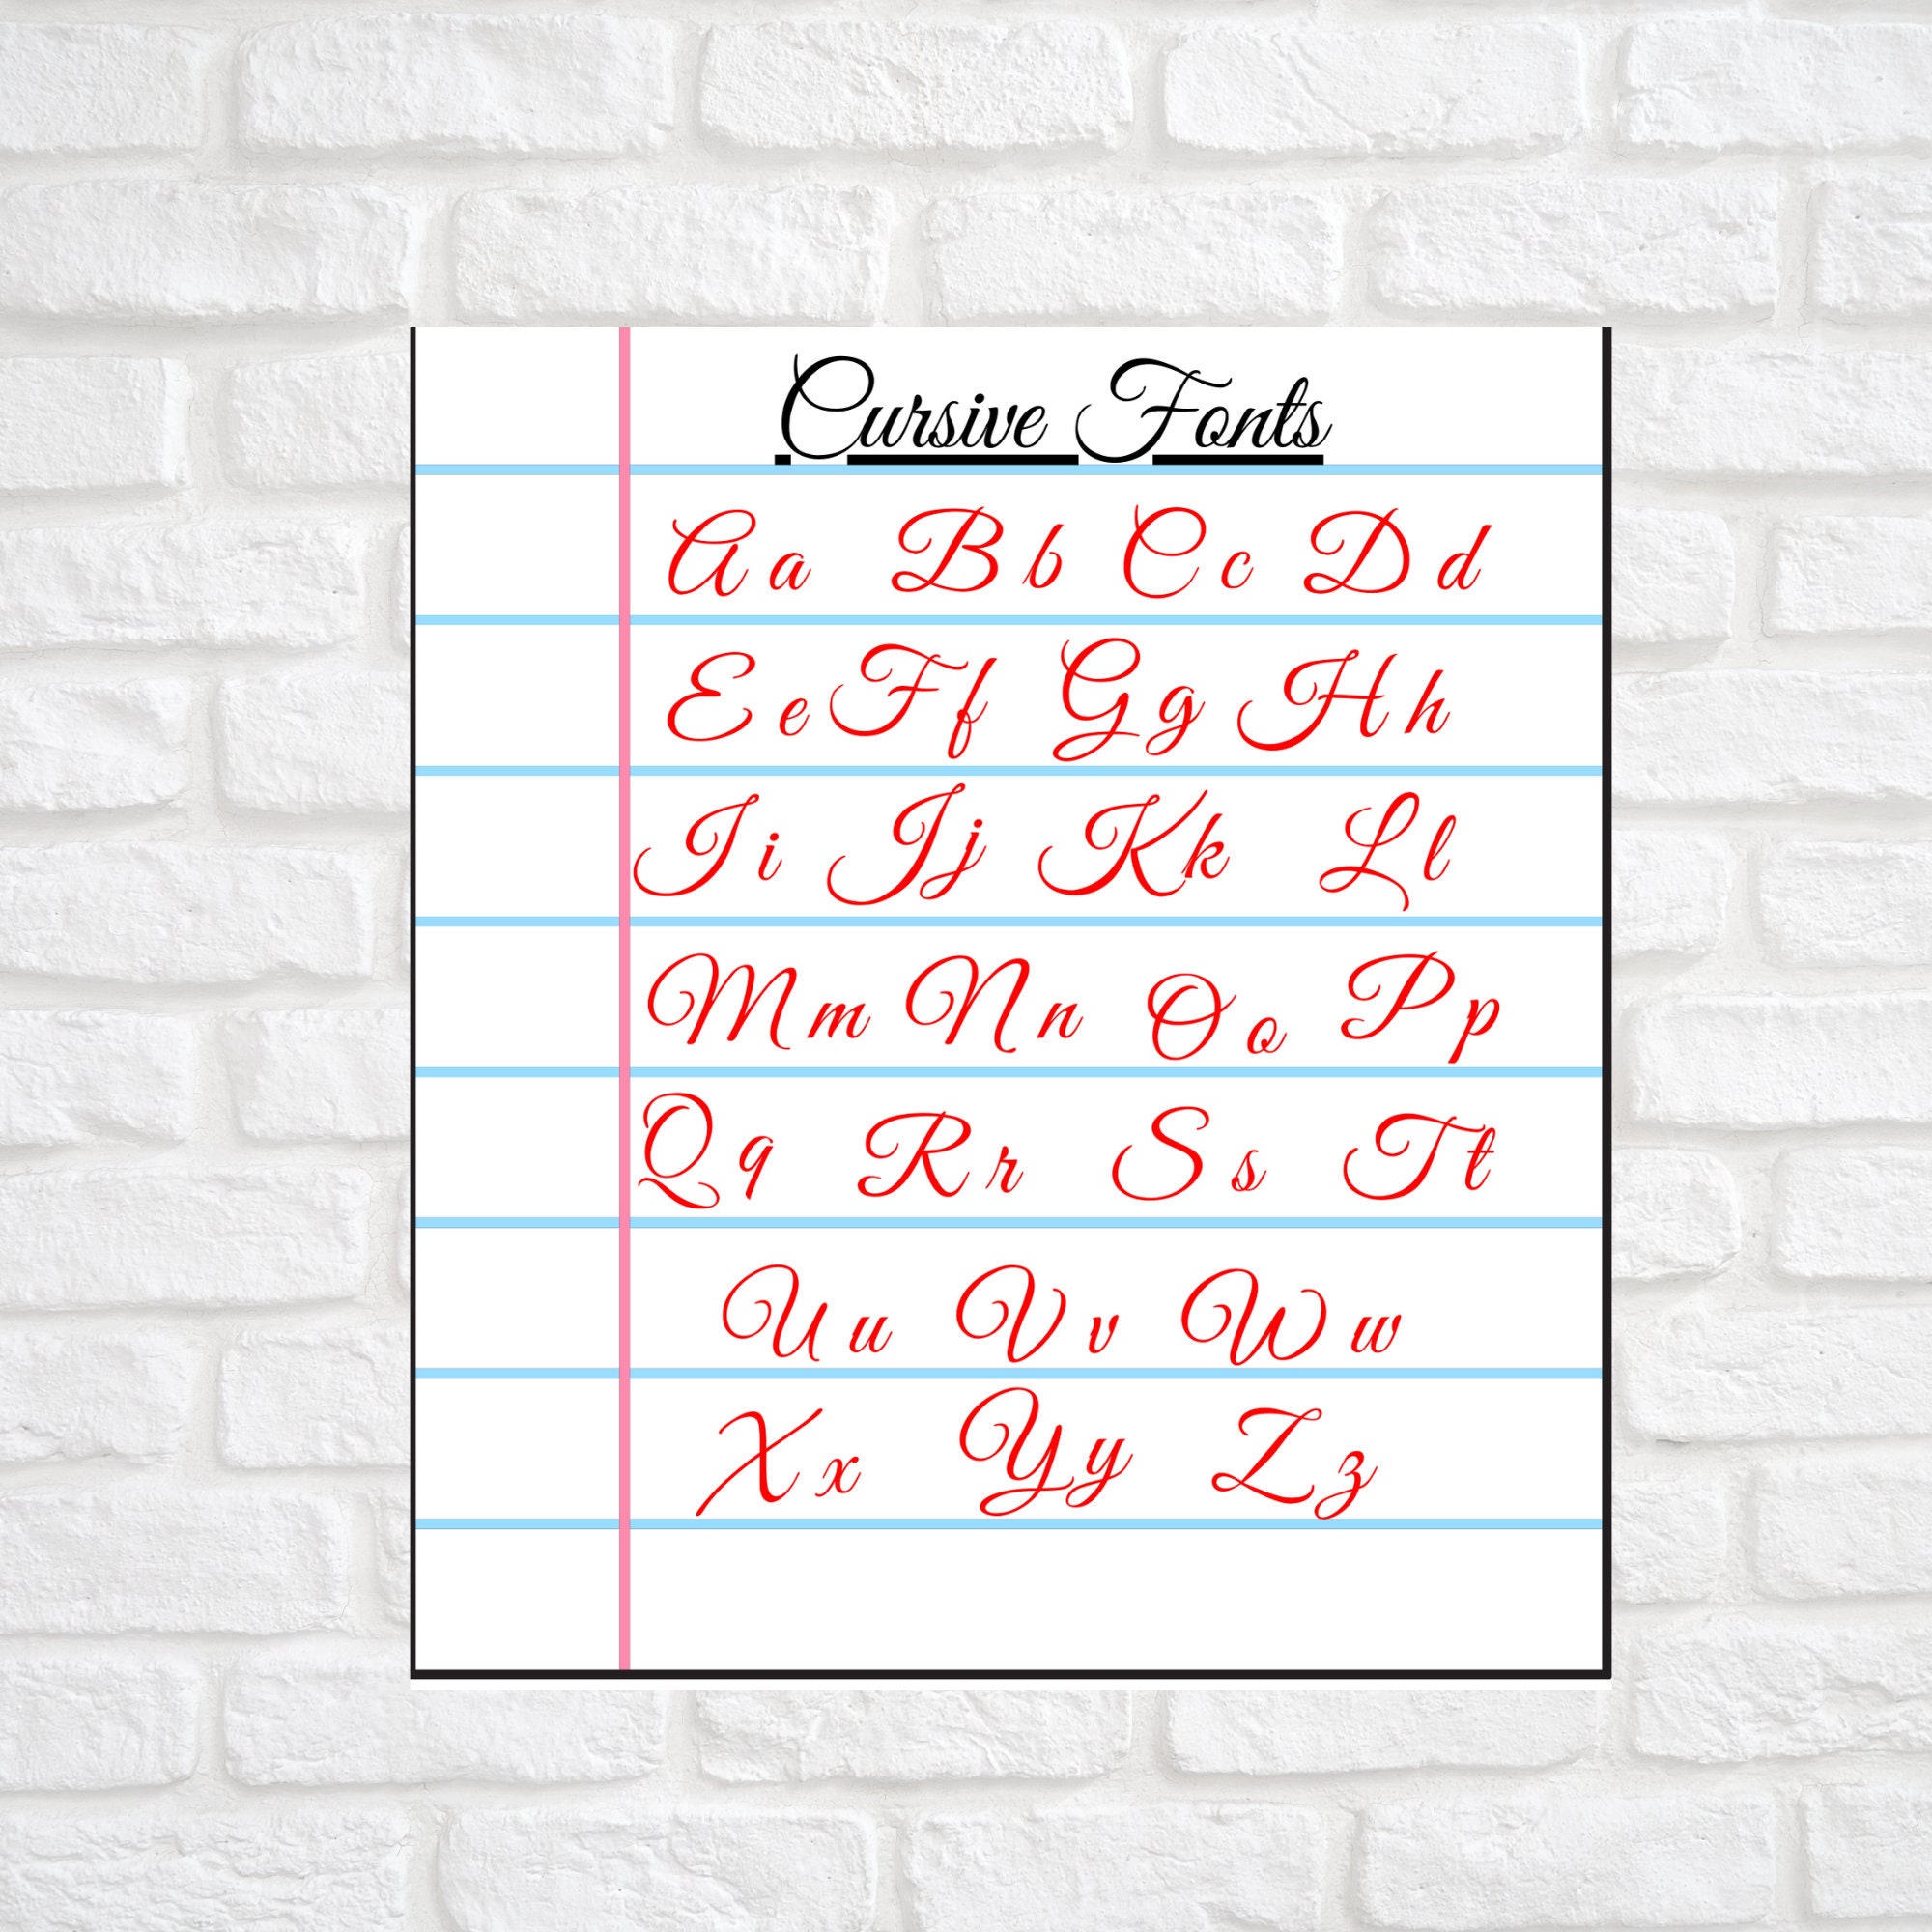 Cursive Fonts
Aa Bb Cc Dd
Ee Ff Gg Hh
Ii Jj Kk Ll
Mm Nn Oo Pp
Qq Rr Ss Tt
Uu Vv Ww
Xx Yy Zz